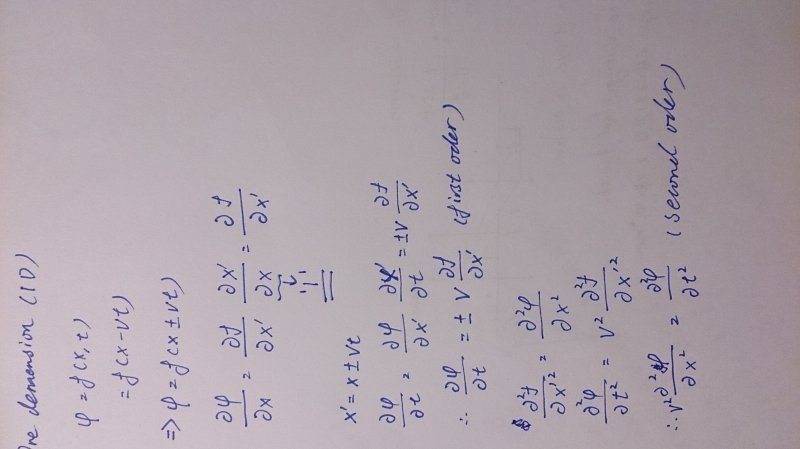 One demension (1D)
φ = f(x, t)
= f(x - vt)
=> φ = f(x ± vt)
∂φ/∂x = ∂f/∂x' ∂x'/∂x = ∂f/∂x'
1
x' = x ± vt
∂φ/∂t = ∂φ/∂x' ∂x'/∂t = ±v ∂f/∂x'
∴ ∂φ/∂t = ± v ∂f/∂x' (first oder)
∂²f/∂x'² = ∂²φ/∂x²
∂²φ/∂t² = v² ∂²f/∂x'²
∴ v² ∂²φ/∂x² = ∂²φ/∂t² (second oder)